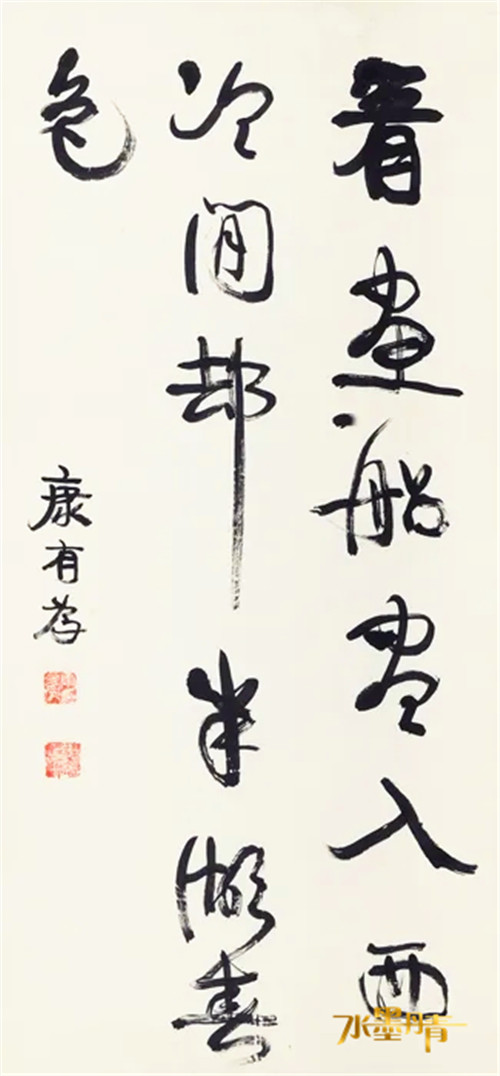 看畫船盡入西
泠閒却半湖春
色
康有為
水墨丹青